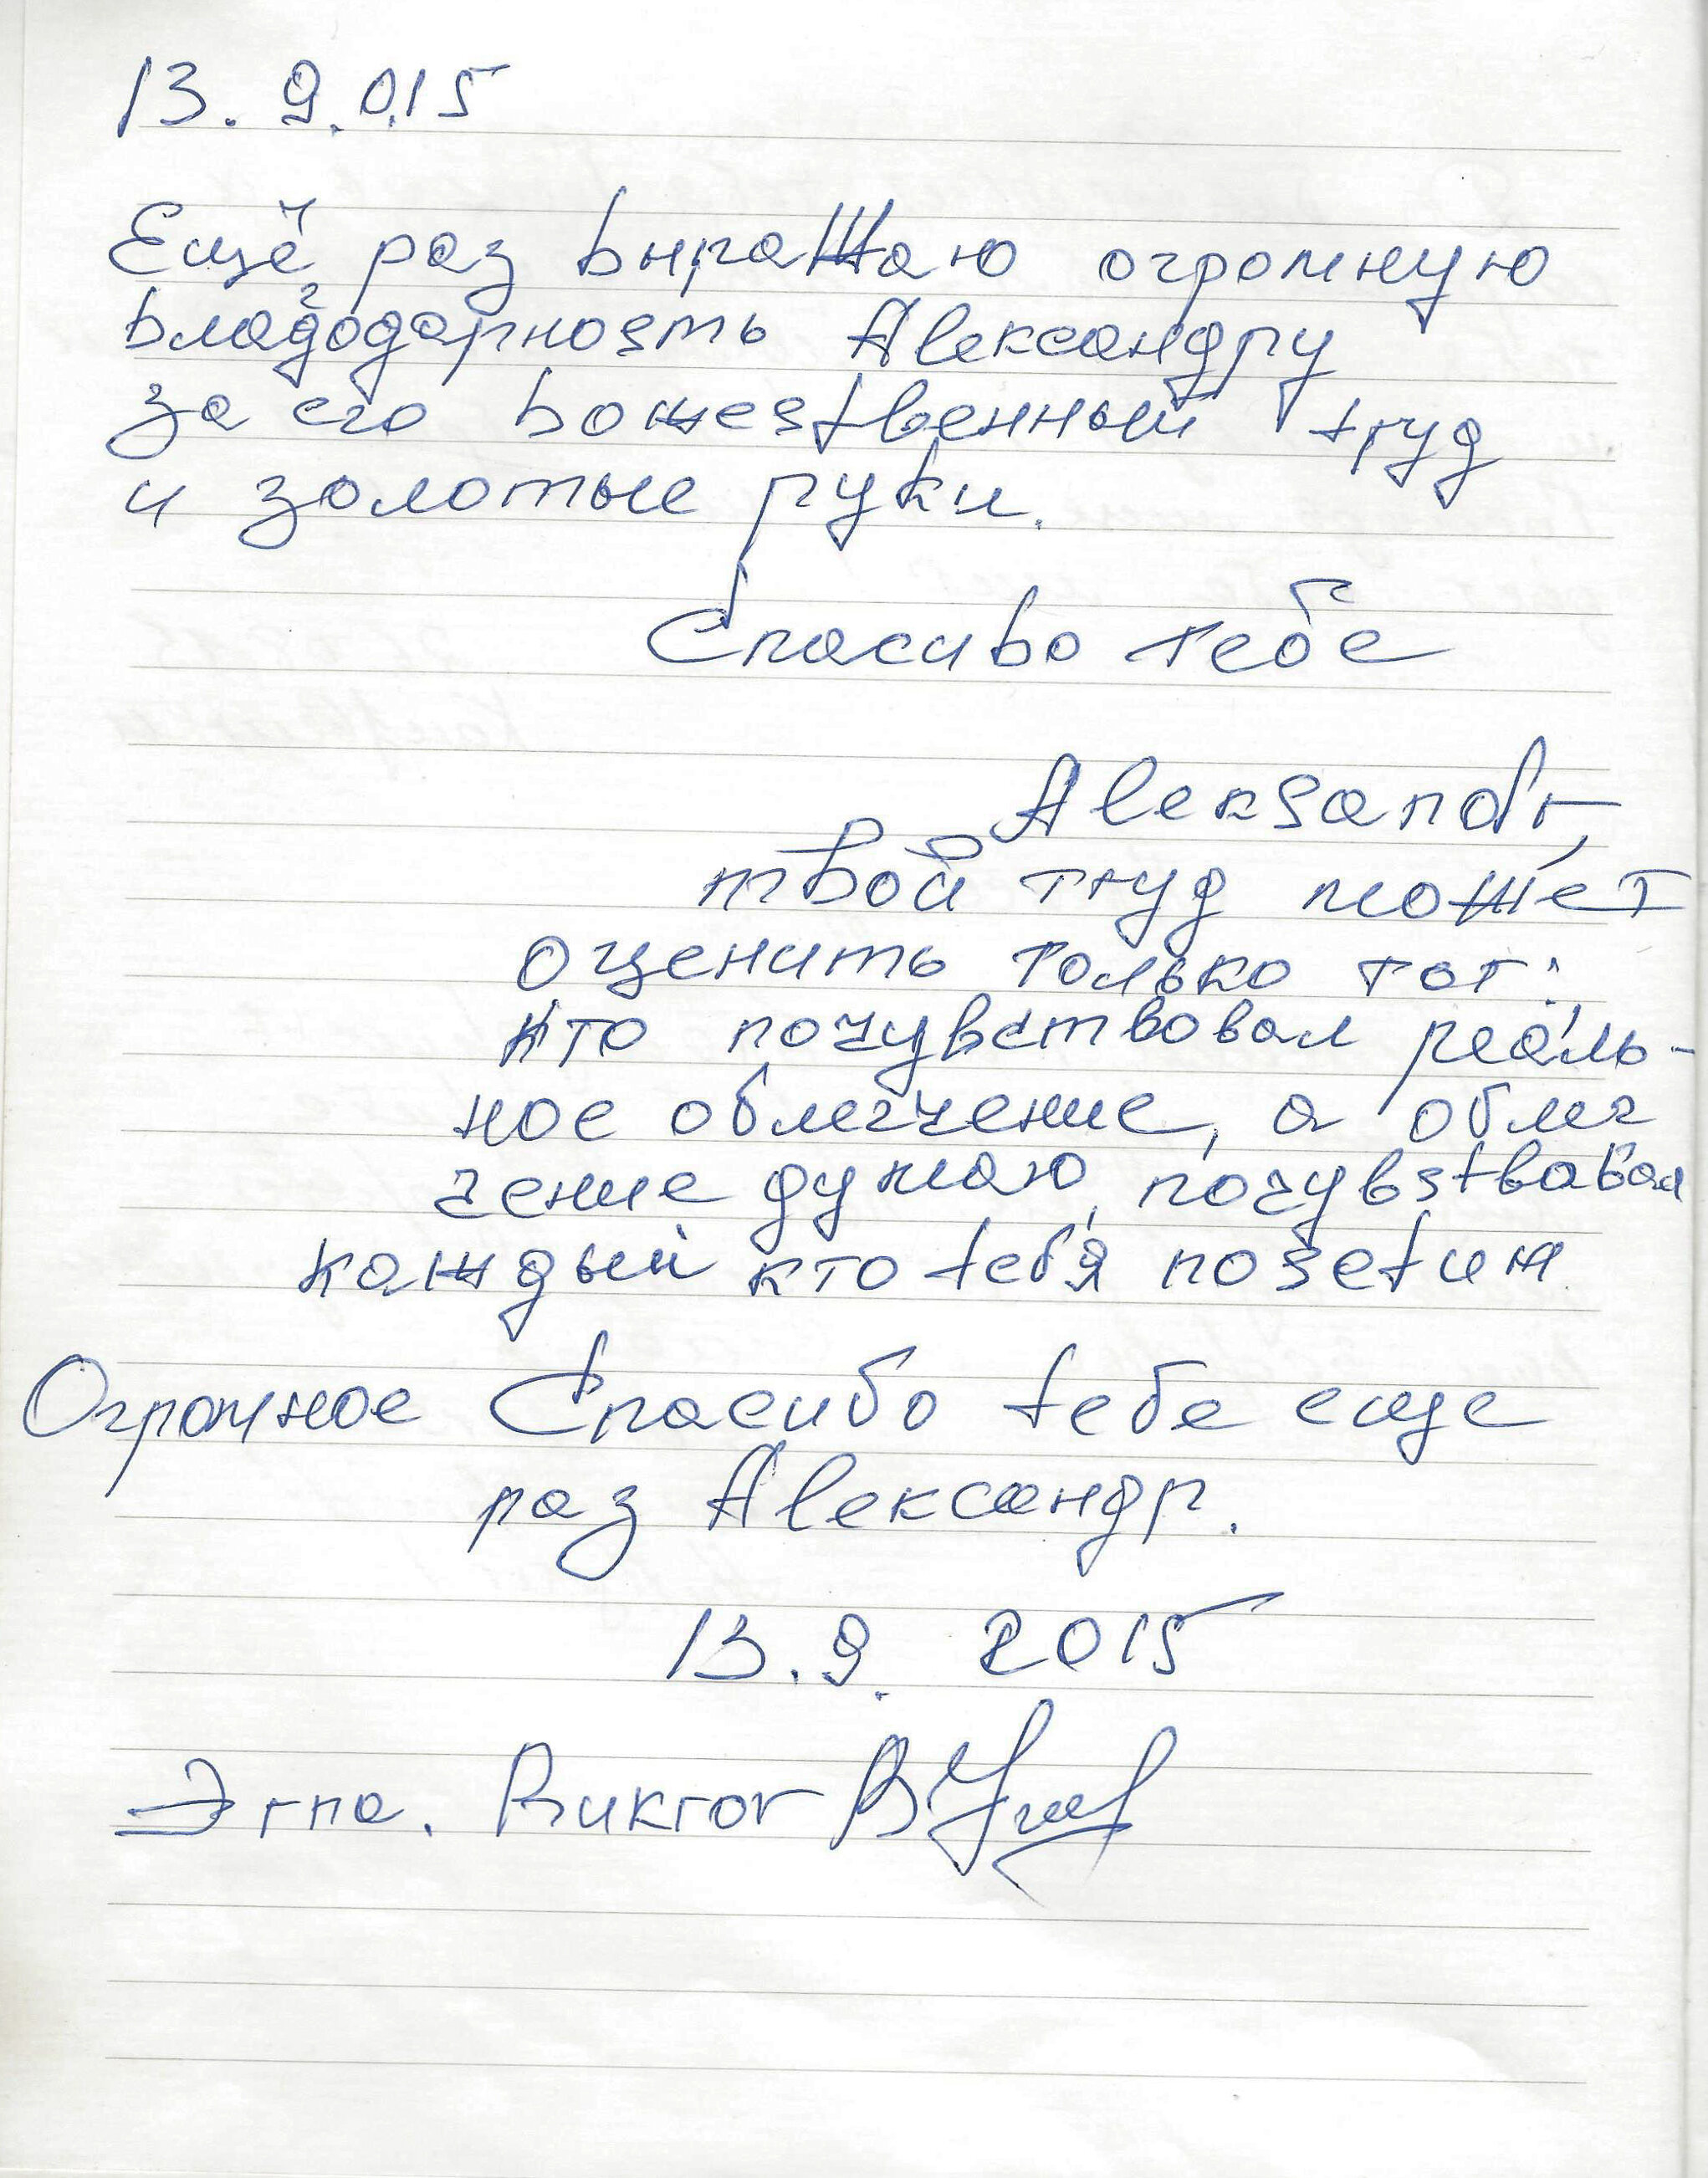 13.9.015
Ещё раз выражаю огромную
благодарность Александру
за его божественный труд
и золотые руки.
Спасибо тебе
Aleksandr,
твой труд может
оценить только тот:
кто почувствовал реаль-
ное облегчение, а облег
чение думаю, почувствовал
каждый кто тебя посетил
Огромное Спасибо тебе еще
раз Александр.
13.9. 2015
Виктор